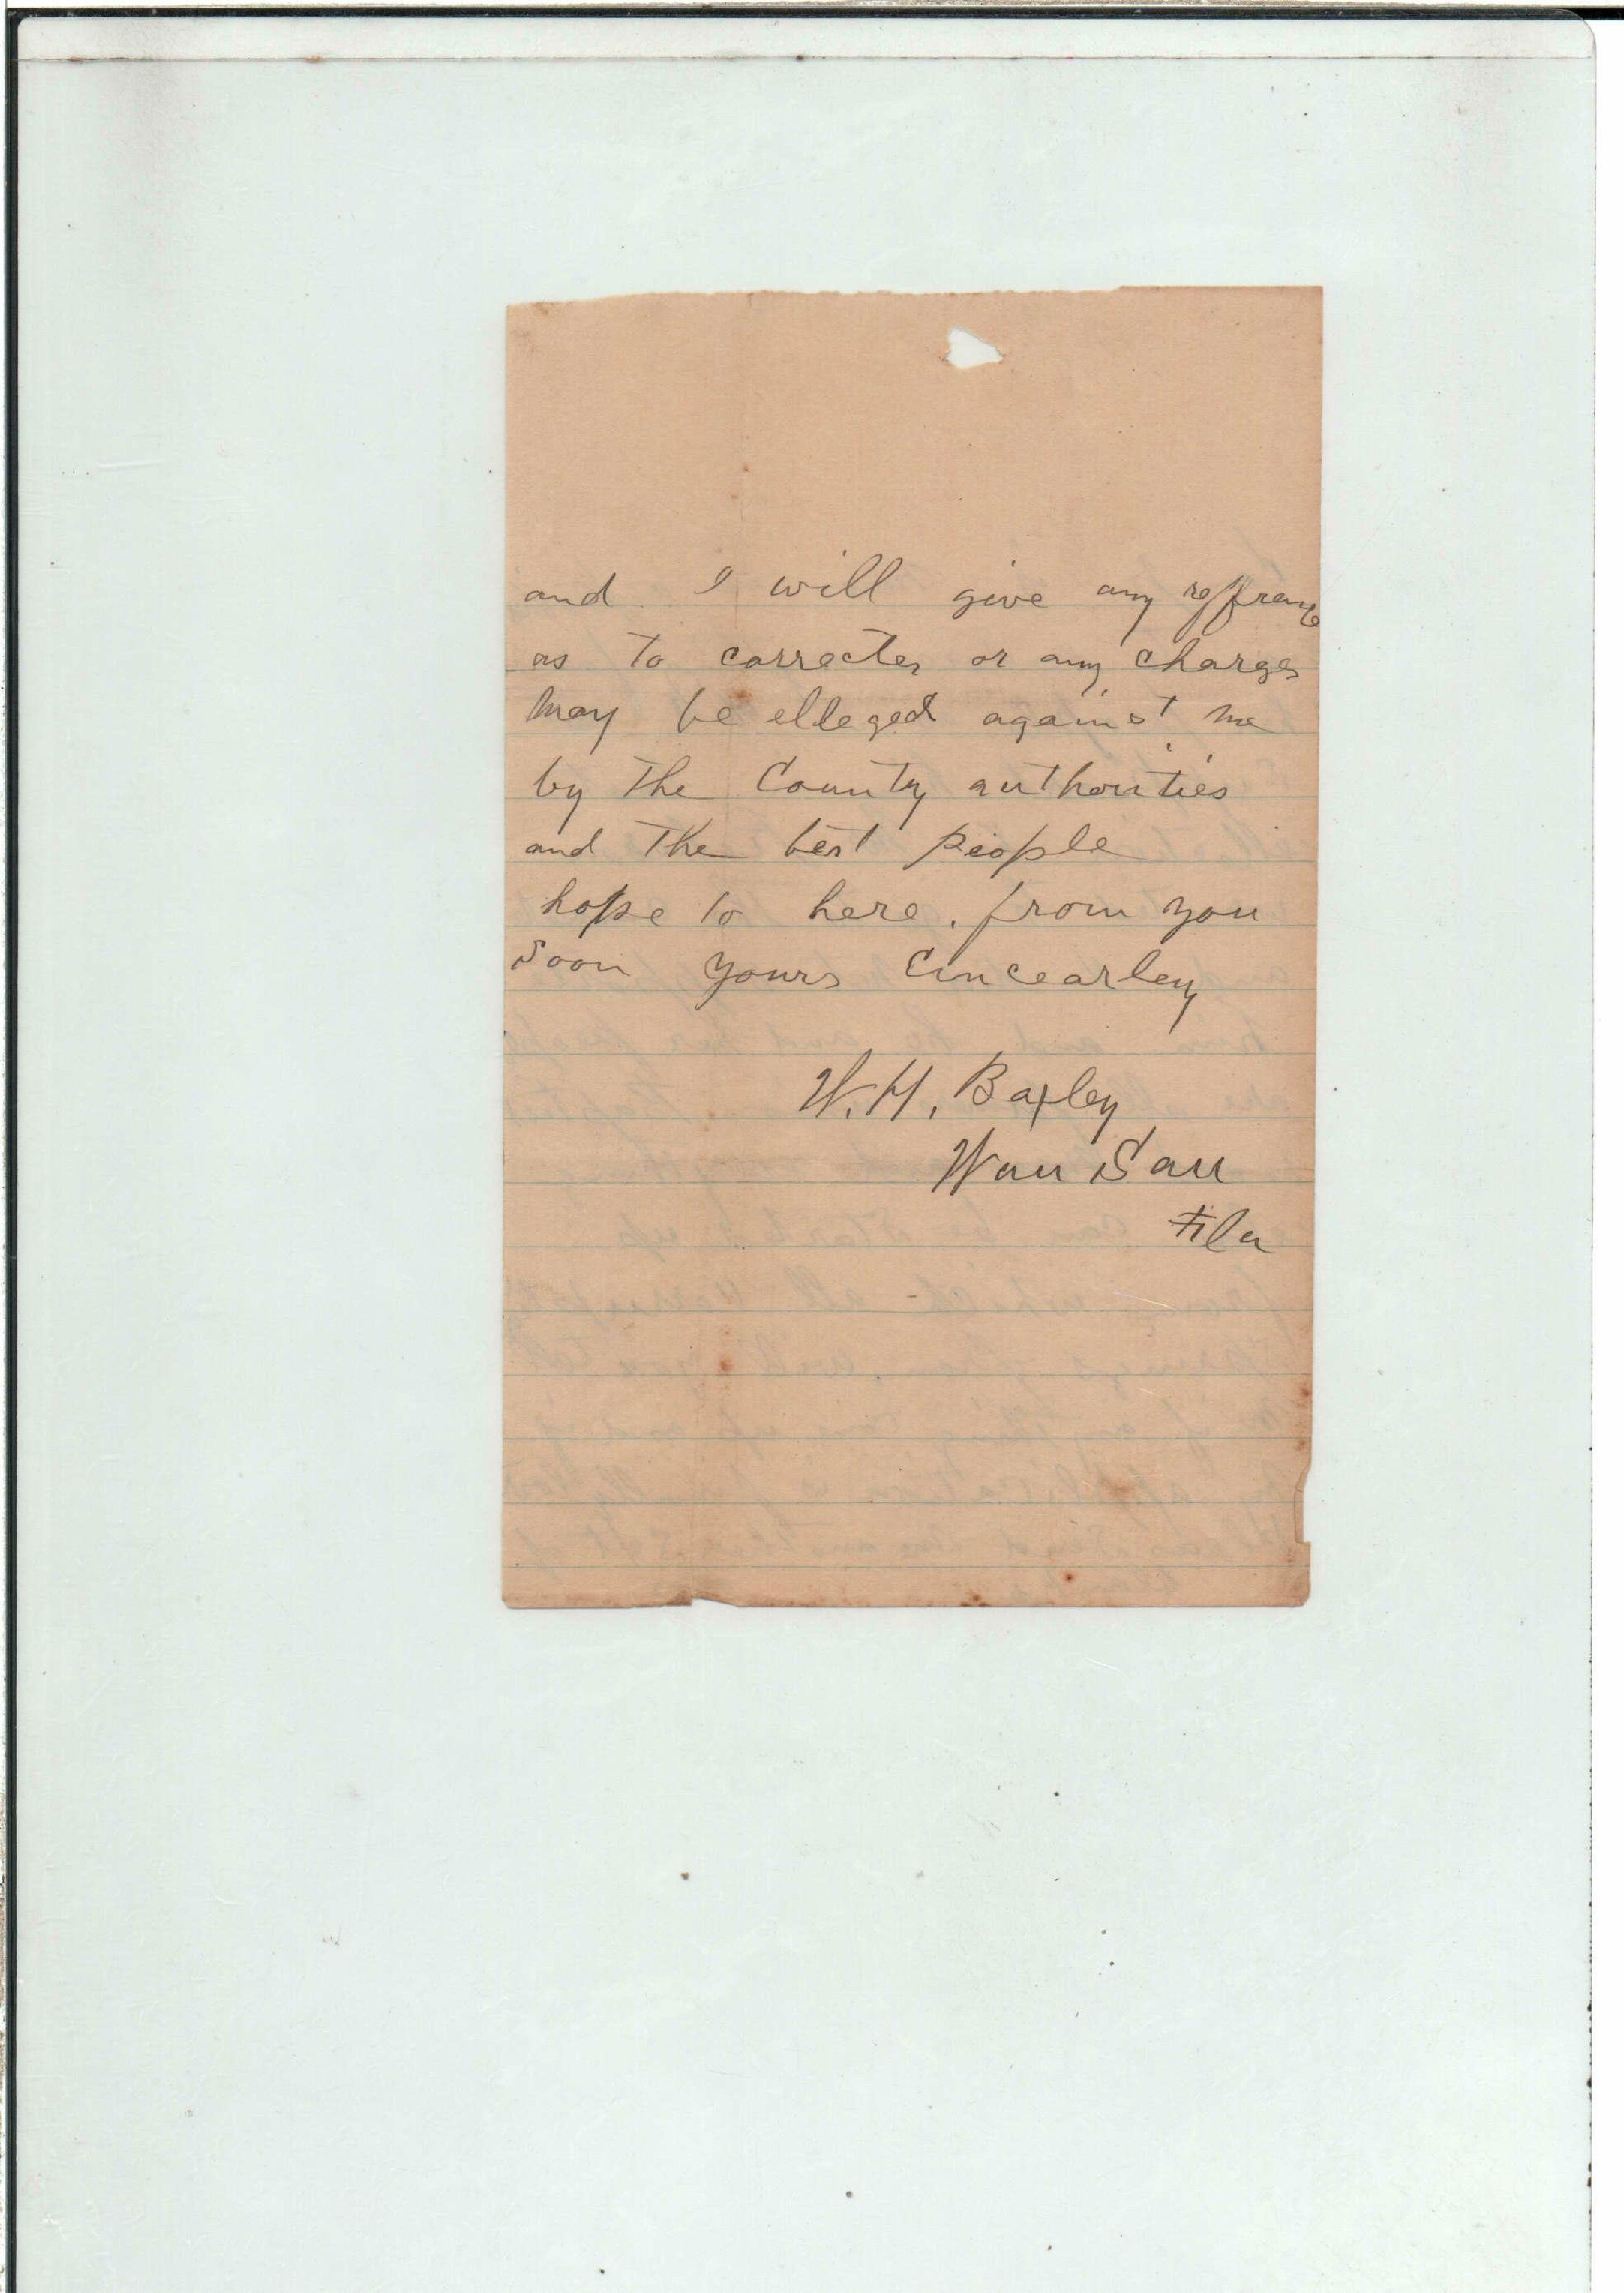 and I will give any reffrence
as to correcter or any charges
may be elleged against me
by The County authorities
and The best people
hope to here. from you
Soon yours Cincearley
W. H. Baxley
Wau Sau
Fla